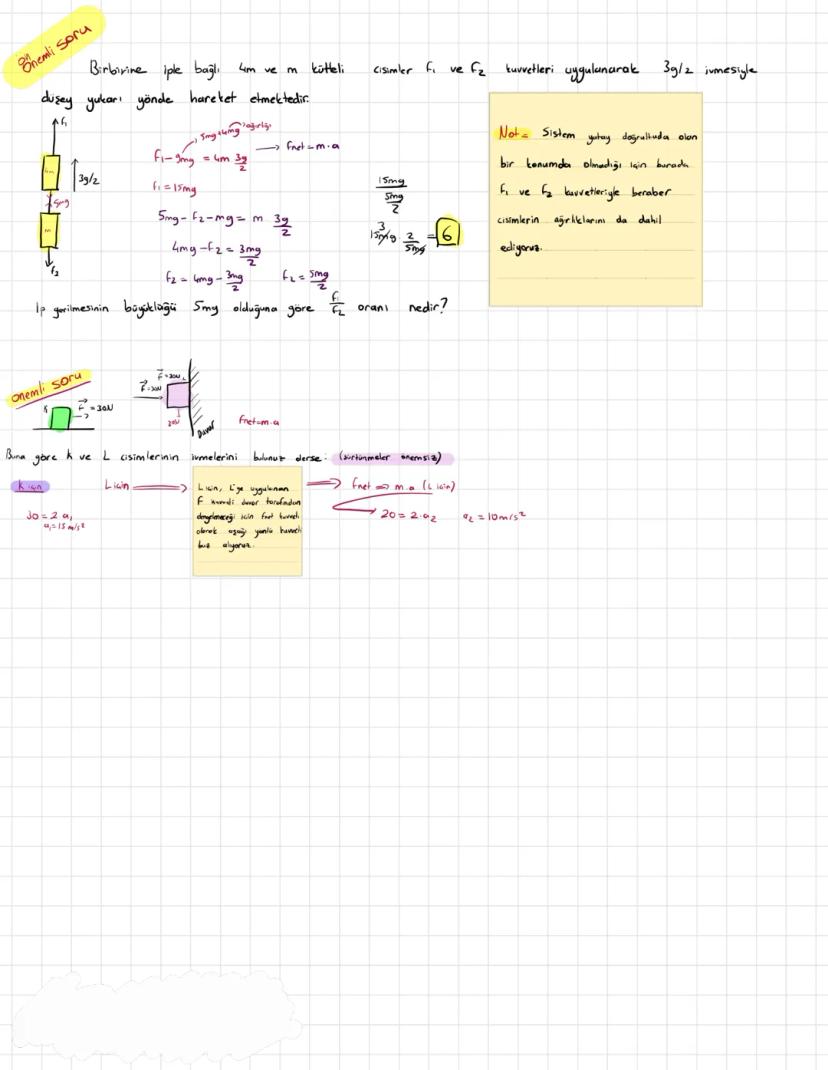 Çok Önemli soru
Birbirine iple bağlı 4m ve m kütleli cisimler F₁ ve F₂ kuvvetleri uygulanarak 3g/2 ivmesiyle
düşey yukarı yönde hareket etmektedir.
F₁
4m
3g/2
5mg
m
F₂
5mg+4mg → ağırlığı
F₁-9mg = 4m 3g/2 → Fnet = m.a
F₁ = 15mg
5mg - F₂ - mg = m 3g/2
4mg - F₂ = 3mg/2
F₂ = 4mg - 3mg/2 F₂ = 5mg/2
15mg
5mg/2
3
15mg 2/5mg = 6
Not = Sistem yatay doğrultuda olan
bir konumda olmadığı için burada
F₁ ve F₂ kuvvetleriyle beraber
cisimlerin ağırlıklarını da dahil
ediyoruz.
İp gerilmesinin büyüklüğü 5mg olduğuna göre F₁/F₂ oranı nedir?
önemli soru
K F = 30N
F = 30N L
F = 30N
20N
Duvar
Fnet = m.a
Buna göre K ve L cisimlerinin ivmelerini bulunuz derse: (sürtünmeler önemsiz)
K için
30 = 2 a₁
a₁ = 15 m/s²
L için →
L için, L'ye uygulanan
F kuvveti duvar tarafından
dengeleneceği için fnet kuvveti
olarak aşağı yönlü kuvveti
biz alıyoruz.
→ Fnet ⇒ m.a (L için)
→ 20 = 2.a₂ a₂ = 10m/s²